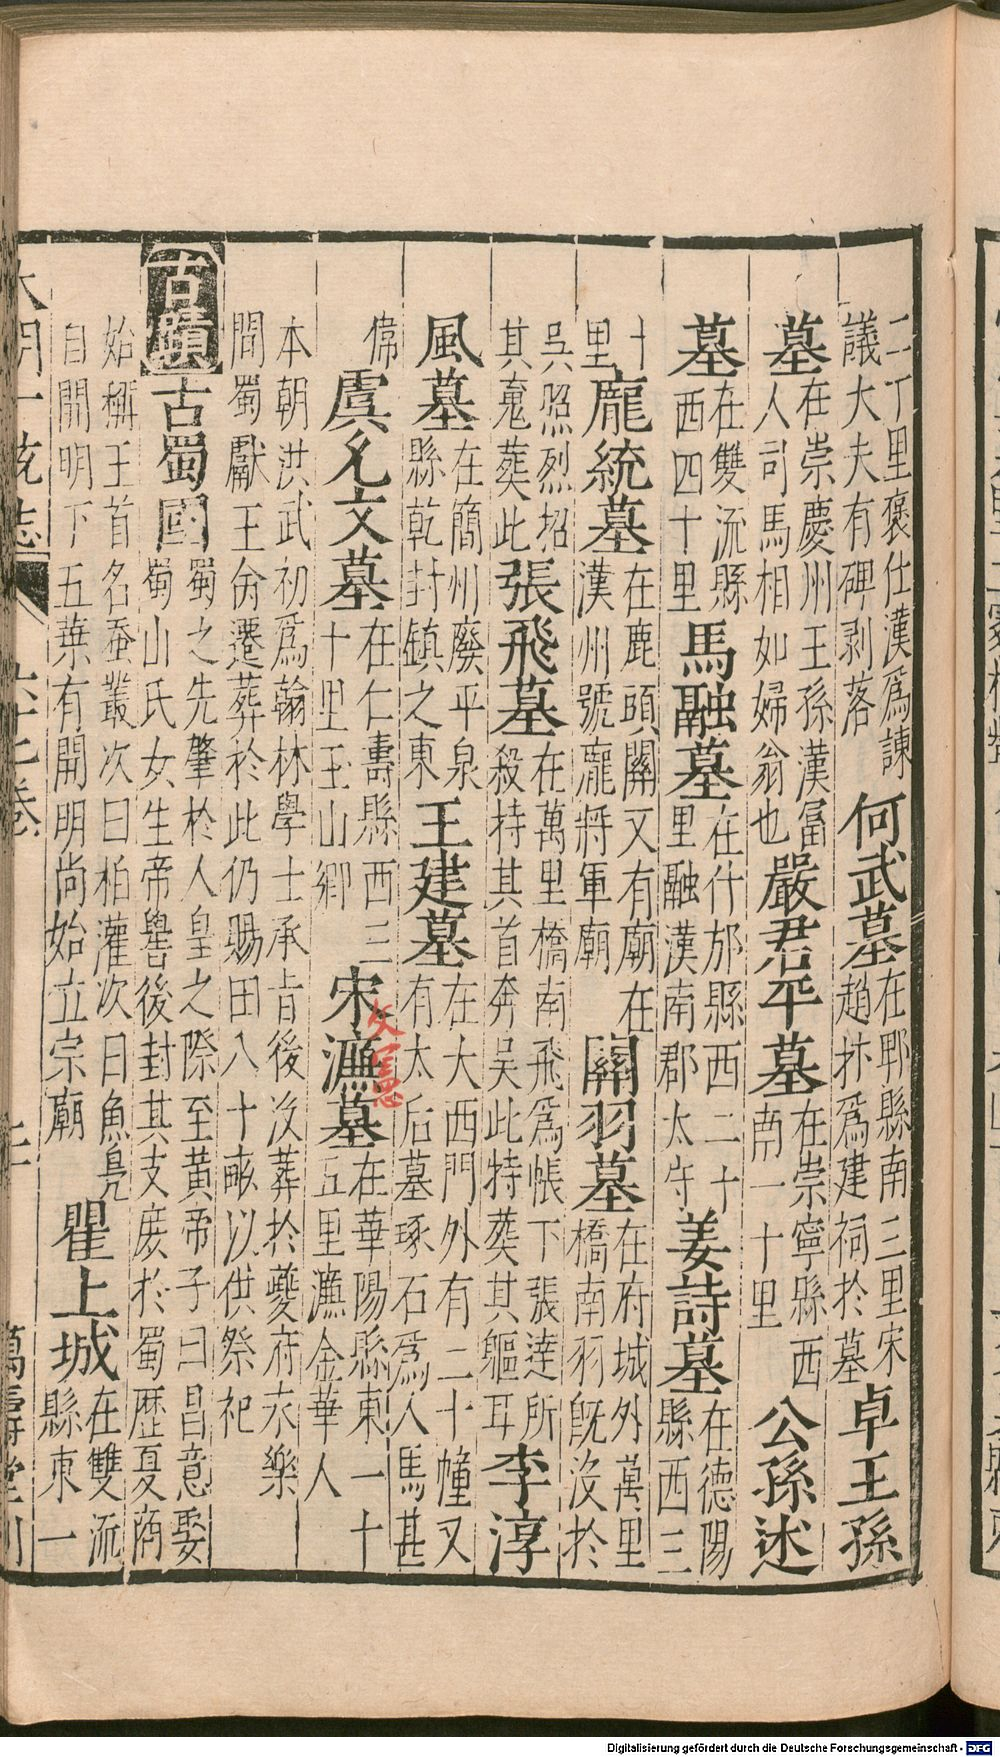 二十里褒仕漢爲諫
議大夫有碑剥落
何武墓
在郫縣南三里宋
趙抃爲建祠於墓
卓王孫
墓
在崇慶州王孫漢富
人司馬相如婦翁也
嚴君平墓
在崇寧縣西
南一十里
公孫述
墓
在雙流縣
西四十里
馬融墓
在什邡縣西二十
里融漢南郡太守
姜詩墓
在德陽
縣西三
十
里
龐統墓
在鹿頭關又有廟在
漢州號龐將軍廟
關羽墓
在府城外萬里
橋南羽旣没於
吳照烈招
其䰟葬此
張飛墓
在萬里橋南飛爲帳下張達所
殺持其首奔吳此特葬其軀耳
李淳
風墓
在簡州廢平泉
縣乾封鎮之東
王建墓
在大西門外有二十幢又
有太后墓琢石爲人馬甚
偉
虞允文墓
在仁壽縣西三
十里玉山鄉
宋濂墓
文憲
在華陽縣東一十
五里濂金華人
本朝洪武初爲翰林學士承旨後没葬於夔府永樂
間蜀獻王命遷葬於此仍賜田八十畝以供祭祀
古蹟
古蜀國
蜀之先肇於人皇之際至黄帝子曰昌意娶
蜀山氏女生帝嚳後封其支庶於蜀歷夏商
始稱王首名蚕叢次曰柏灌次曰魚鳧
自開明下五葉有開明尚始立宗廟
瞿上城
在雙流
縣東一
大明一統志
卷
萬壽堂刊
Digitalisierung gefördert durch die Deutsche Forschungsgemeinschaft - DFG